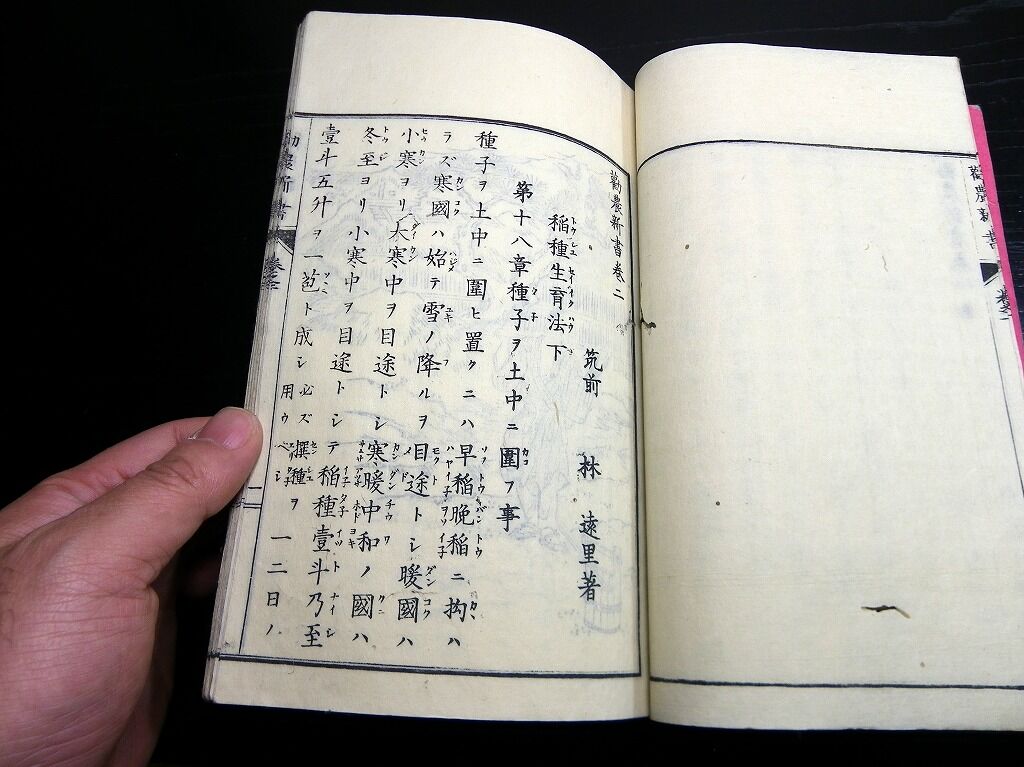 勸農新書
勸農新書巻二
筑前 林 遠里著
稲種生育法下
第十八章種子ヲ土中ニ圍フ事
種子ヲ土中ニ圍ヒ置クニハ早稲晩稲ニ拘ハ
ラズ寒國ハ始テ雪ノ降ルヲ目途トシ暖國ハ
小寒ヨリ大寒中ヲ目途トシ寒暖中和ノ國ハ
冬至ヨリ小寒中ヲ目途トシテ稲種壹斗乃至
壹斗五升ヲ一苞ト成シ必ズ撰種ヲ用ウベシ一二日ノ
農新書
二